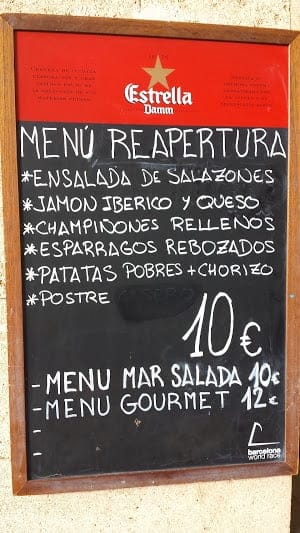 Estrella
Damm
MENÚ REAPERTURA
*ENSALADA DE SALAZONES
*JAMON IBERICO Y QUESO
*CHAMPIÑONES RELLENOS
*ESPARRAGOS REBOZADOS
*PATATAS POBRES + CHORIZO
*POSTRE
10€
- MENU MAR SALADA 10€
- MENU GOURMET 12€
-
-
barcelona
world race